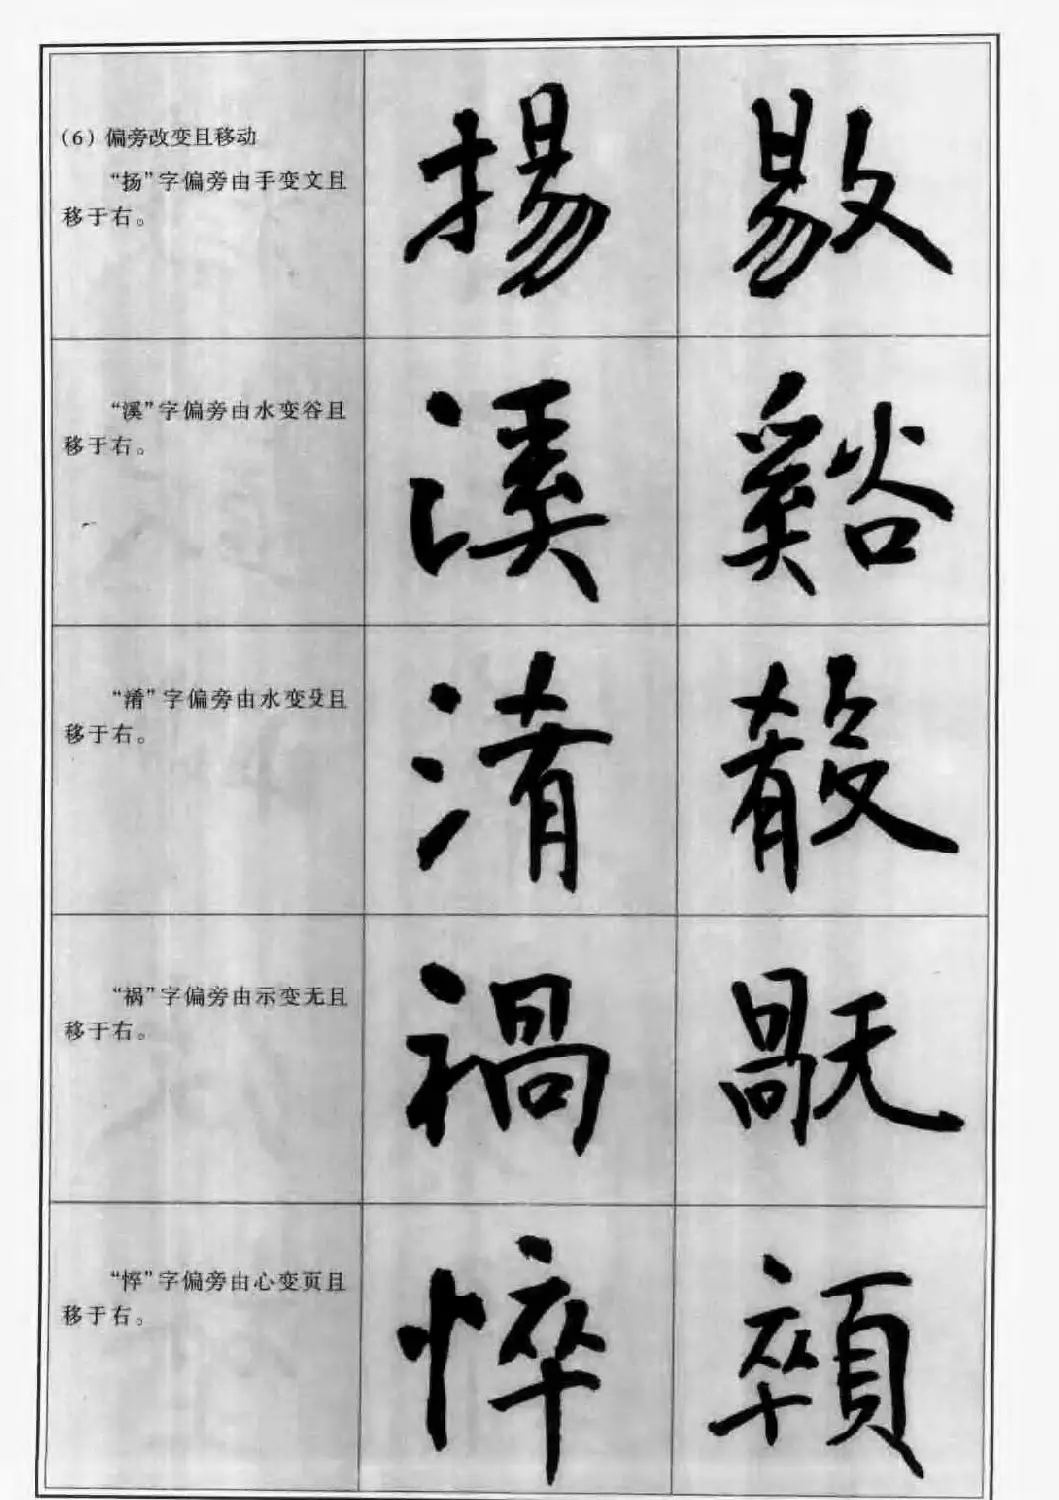 （6）偏旁改变且移动
“扬”字偏旁由手变文且
移于右。
揚 敭
“溪”字偏旁由水变谷且
移于右。
溪 谿
“淆”字偏旁由水变殳且
移于右。
淆 殽
“祸”字偏旁由示变无且
移于右。
禍
“悴”字偏旁由心变页且
移于右。
悴 顇